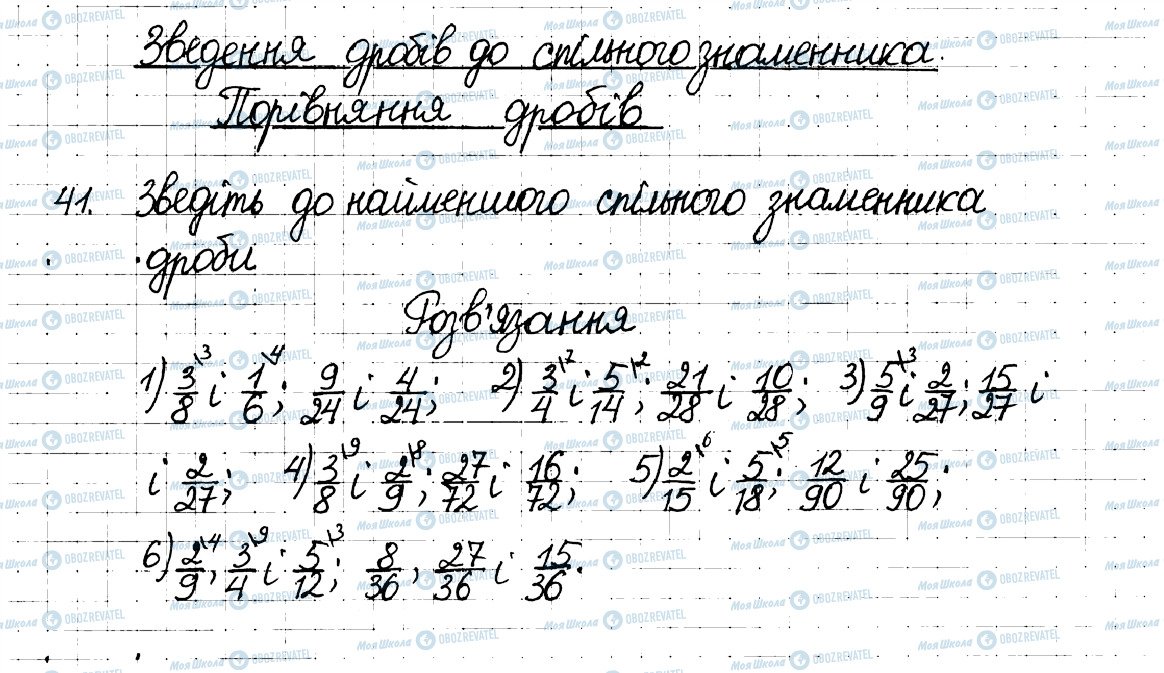 Зведення дробів до спільного знаменника.
Порівняння дробів
41. Зведіть до найменшого спільного знаменника
дроби
Розв'язання
1) 3/8 \3 і 1/6 \4; 9/24 і 4/24; 2) 3/4 \7 і 5/14 \2; 21/28 і 10/28; 3) 5/9 \3 і 2/27; 15/27 і
і 2/27; 4) 3/8 \9 і 2/9 \8; 27/72 і 16/72; 5) 2/15 \6 і 5/18 \5; 12/90 і 25/90;
6) 2/9 \4, 3/4 \9 і 5/12 \3; 8/36, 27/36 і 15/36.
Моя Школа OBOZREVATEL